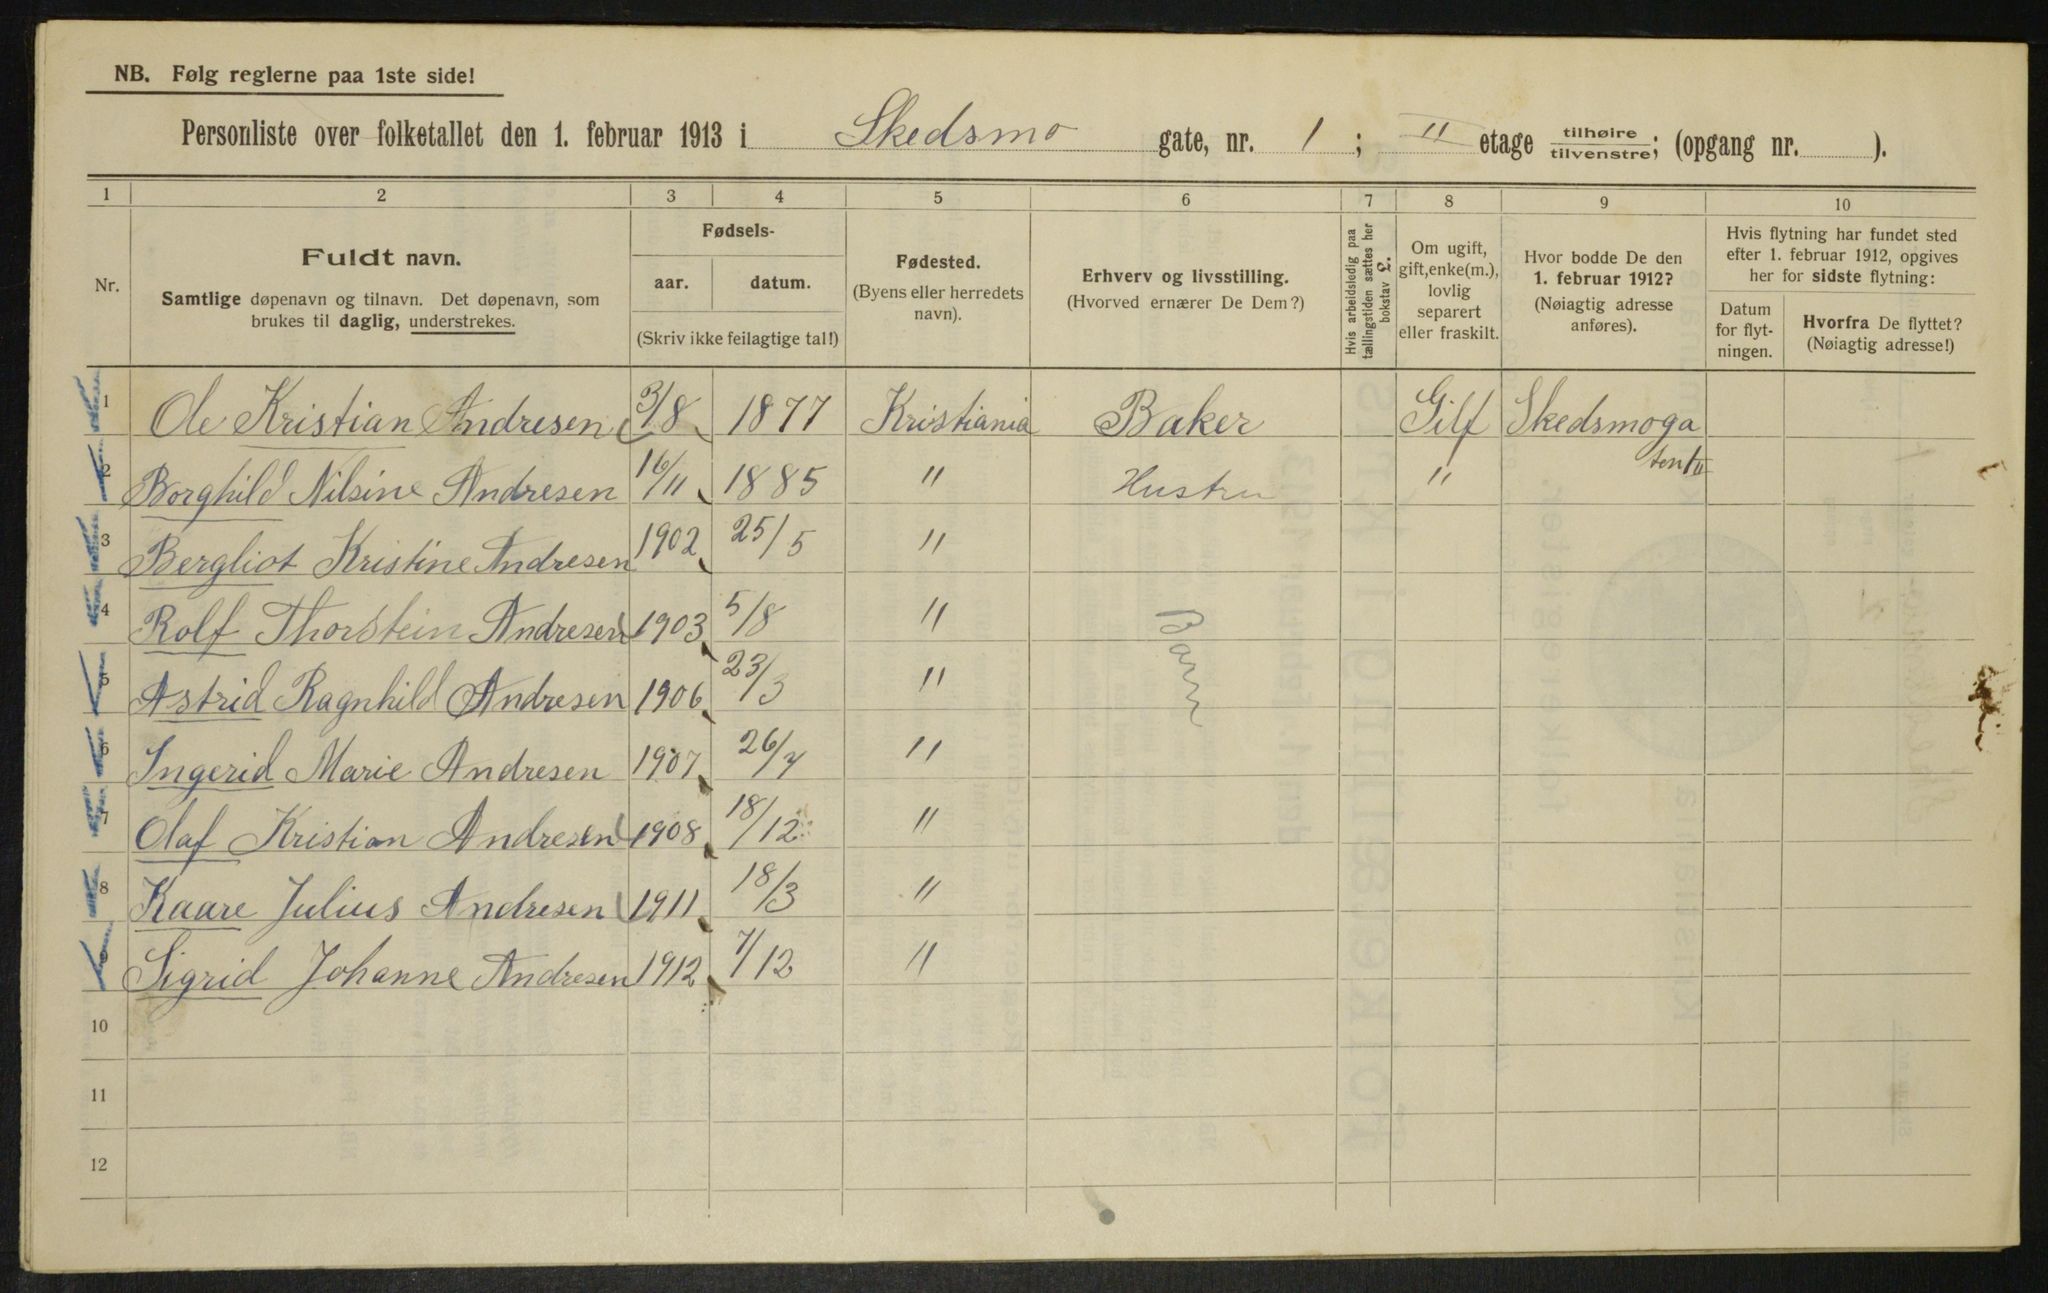 NB. Følg reglerne paa 1ste side!
Personliste over folketallet den 1. februar 1913 i Skedsmo gate, nr. 1 ; II etage tilhøire tilvenstre; (opgang nr. ).
1 2 3 4 5 6 7 8 9 10
Nr.
Fuldt navn.
Samtlige døpenavn og tilnavn. Det døpenavn, som
brukes til daglig, understrekes.
Fødsels-
aar. datum.
(Skriv ikke feilagtige tal!)
Fødested.
(Byens eller herredets
navn).
Erhverv og livsstilling.
(Hvorved ernærer De Dem?)
Hvis arbeidsledig paa
tællingstiden sættes her
bokstav £.
Om ugift,
gift, enke(m.),
lovlig
separert
eller fraskilt.
Hvor bodde De den
1. februar 1912?
(Nøiagtig adresse
anføres).
Hvis flytning har fundet sted
efter 1. februar 1912, opgives
her for sidste flytning:
Datum
for flyt-
ningen.
Hvorfra De flyttet?
(Nøiagtig adresse!)
1 Ole Kristian Andresen 3/8 1877 Kristiania Baker Gift Skedsmoga
ten 1 II
2 Borghild Nilsine Andresen 16/11 1885 " Hustru "
3 Bergliot Kristine Andresen 1902 25/5 "
4 Rolf Thorstein Andresen 1903 5/8 "
Barn
5 Astrid Ragnhild Andresen 1906 23/3 "
6 Ingerid Marie Andresen 1907 26/7 "
7 Olaf Kristian Andresen 1908 18/12 "
8 Kaare Julius Andresen 1911 18/3 "
9 Sigrid Johanne Andresen 1912 7/12 "
10
11
12